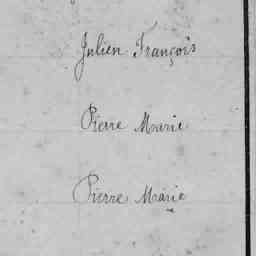 Julien François
Pierre Marie
Pierre Marie